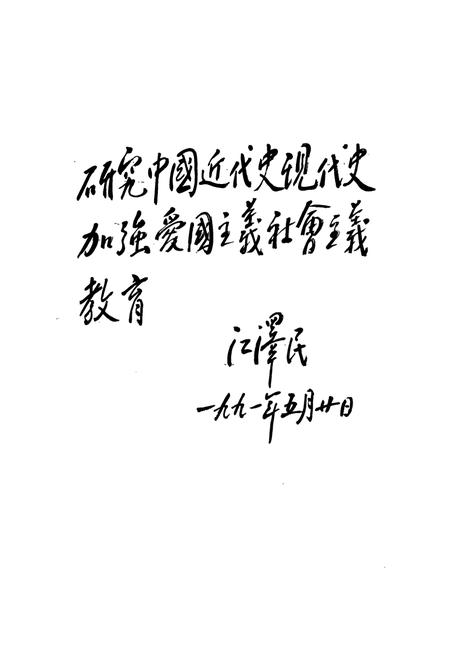 研究中國近代史現代史
加強愛國主義社會主義
教育
江澤民
一九九一年五月廿日